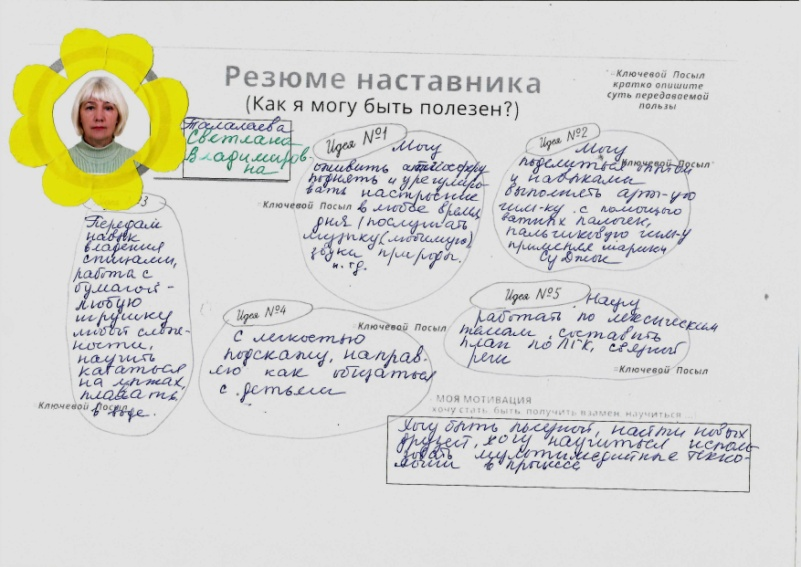 Резюме наставника
(Как я могу быть полезен?)
Ключевой Посыл
кратко опишите
суть передаваемой
пользы
Талалаева
Светлана
Владимиров-
на
Идея №1
Могу
оживить атмосферу
поднять и урегулиро-
вать настроение
Ключевой Посыл
в любое время
дня (послушать
музыку (любимую)
звуки природы.
и т.д.
Идея №2
Могу
поделиться опытом
Ключевой Посыл
и навыками
выполнять арт-ую
гим-ку с помощью
ватных палочек,
пальчиковую гим-у
применяя шарики
Су Джок
3
Передам
навык
владения
спицами,
работа с
бумагой -
любую
игрушку
любой слож-
ности,
научить
кататься
на лыжах,
плавать
Ключевой Посыл
в воде.
Идея №4
Ключевой Посыл
С легкостью
подскажу, направ-
лю как общаться
с детьми
Идея №5
Научу
работать по лексическим
темам, составить
план по ЛГК, связной
речи
Ключевой Посыл
МОЯ МОТИВАЦИЯ
хочу стать, быть, получить взамен, научиться ...
Хочу быть полезной, найти новых
друзей, хочу научиться исполь-
зовать мультимедийные техно-
логии в процессе